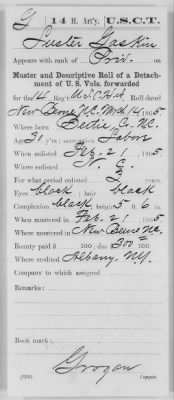 G | 14 H. Art'y. | U.S.C.T.
Luster Gaskin
Appears with rank of Priv. on
Muster and Descriptive Roll of a Detach-
ment of U. S. Vols. forwarded
for the 14 Reg't U.S.C. H A. Roll dated
New Berne N.C. Mch 14, 1865.
Where born Bertie Co. N.C.
Age 31 y'rs; occupation Labor
When enlisted Feb. 21, 1865.
Where enlisted N. C.
For what period enlisted 3 years.
Eyes black; hair black
Complexion black; height 5 ft. 6 in.
When mustered in Feb. 21, 1865.
Where mustered in New Berne N.C.
Bounty paid $ 100; due $ 300 100
Where credited Albany, N.Y.
Company to which assigned
Remarks:
Book mark:
Grogan
Copyist.